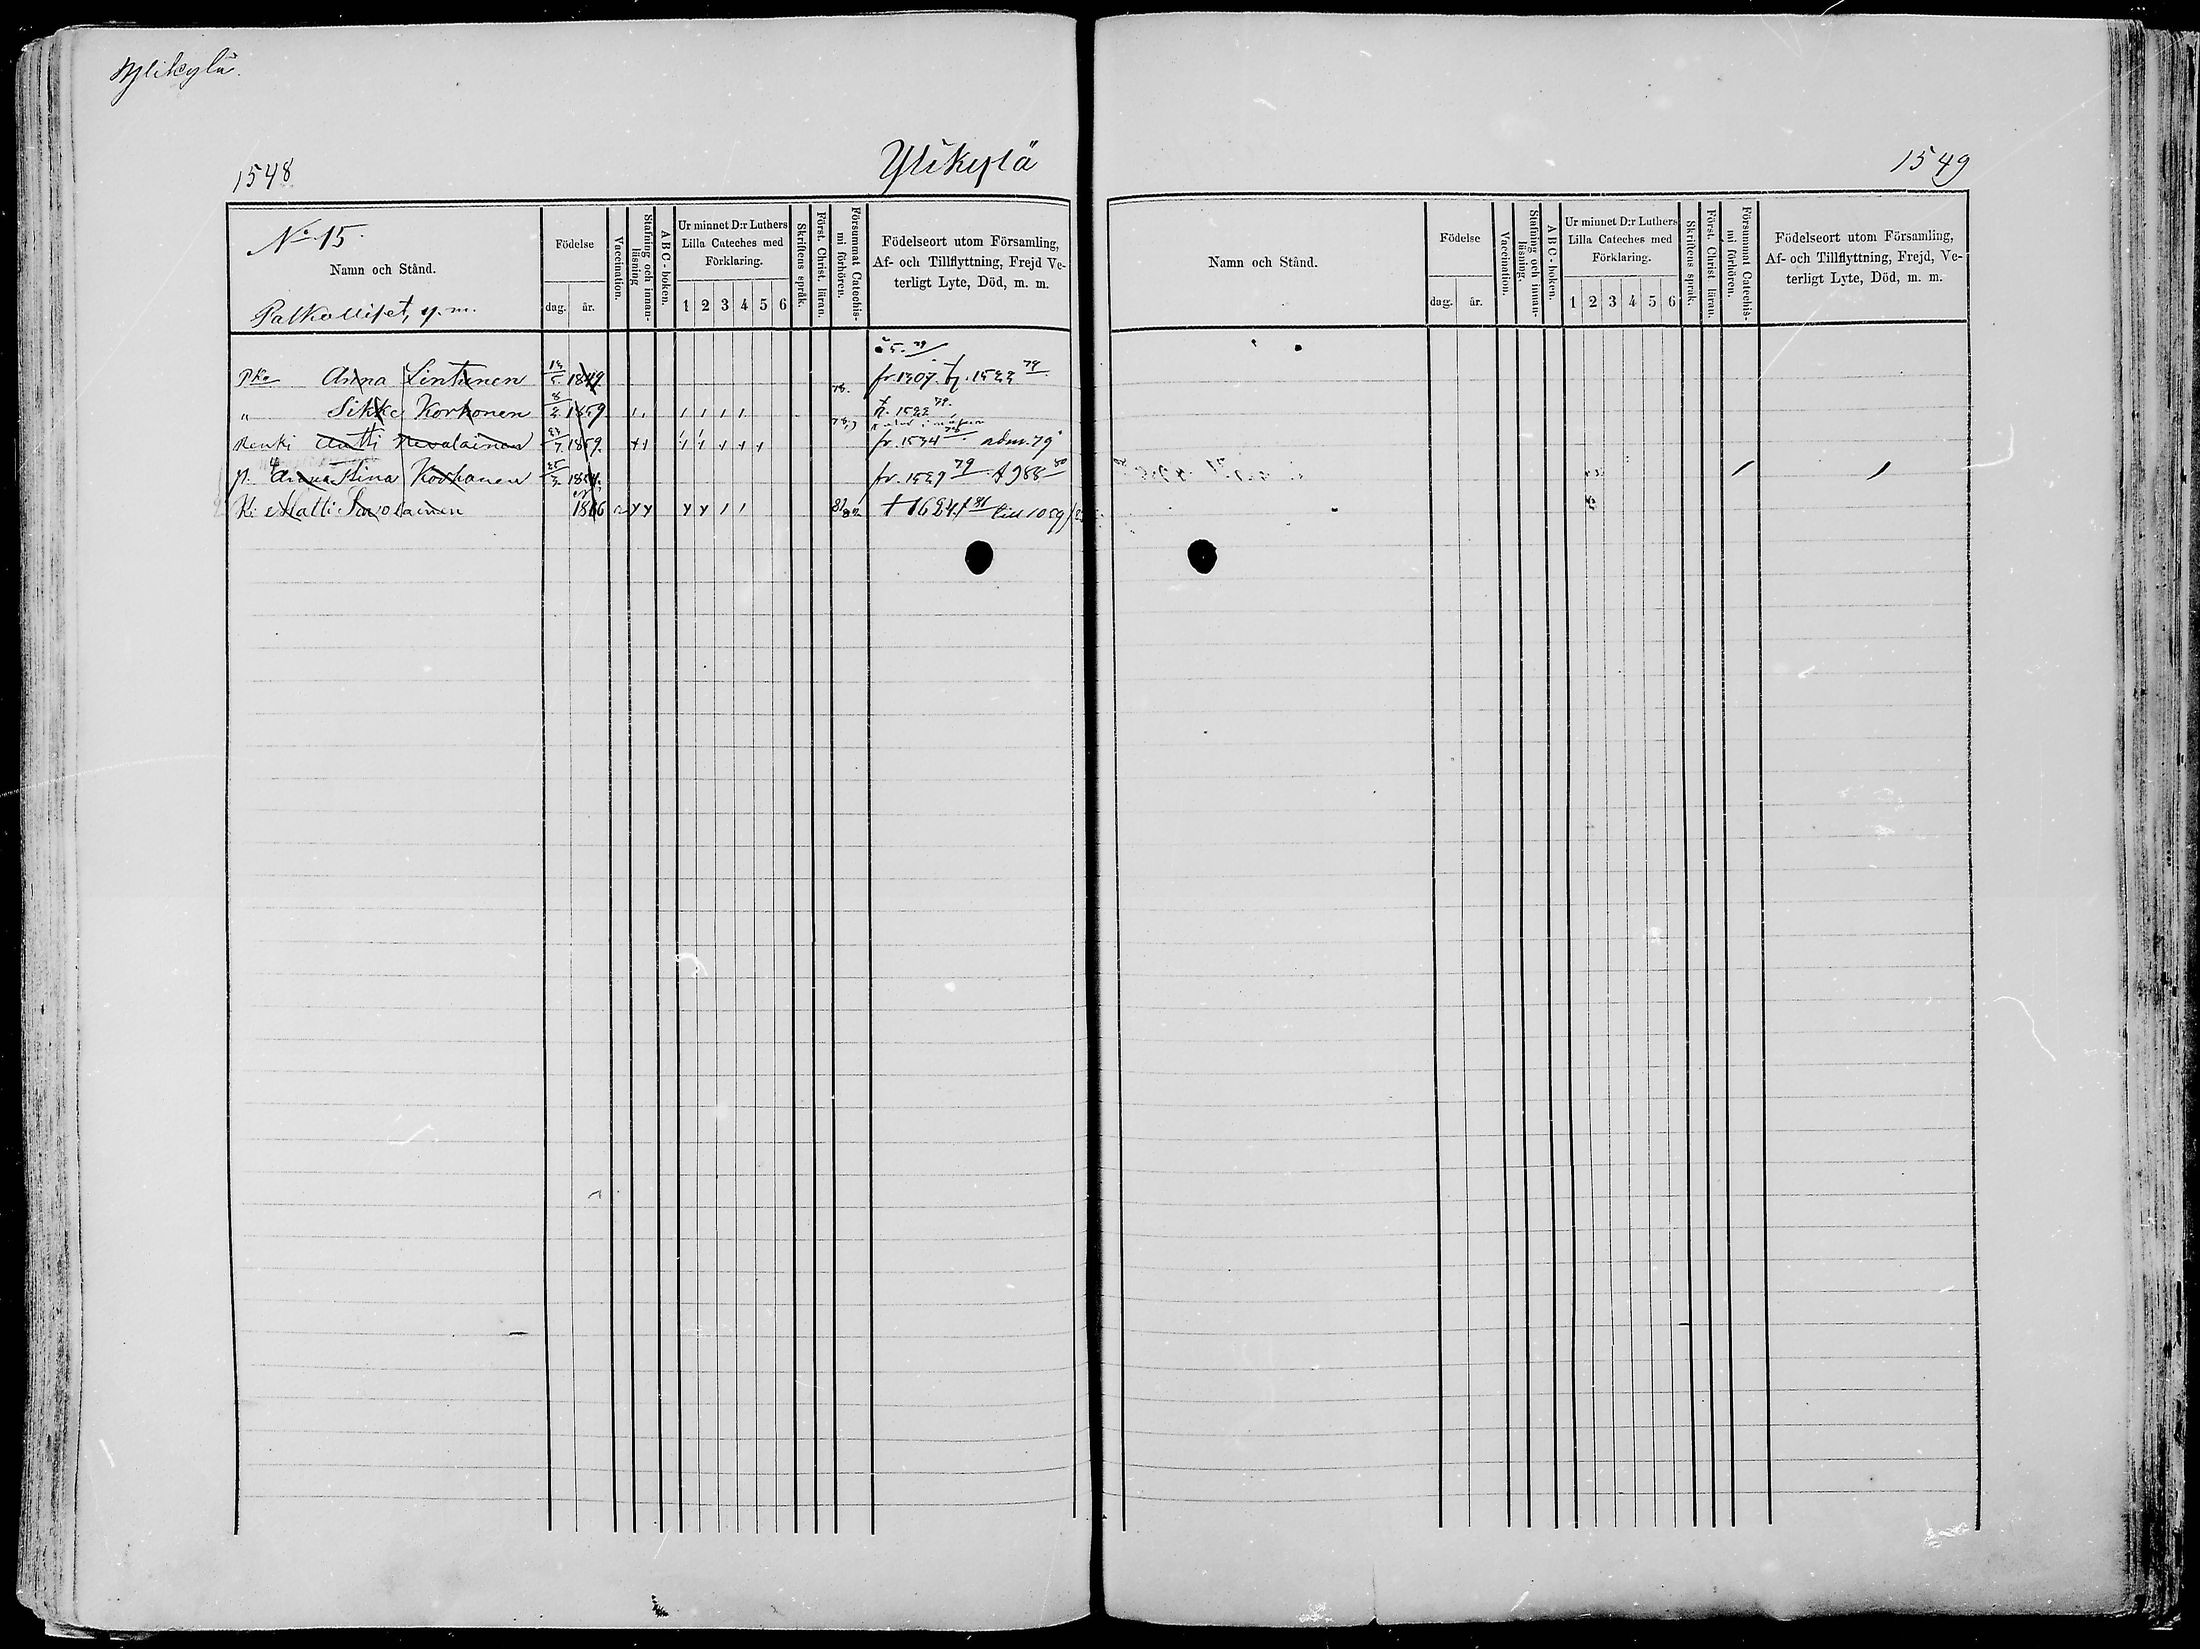 Ylikylä.
1548
Ylikylä
No 15.
Namn och Stånd.
Palkolliset, y. m.
Födelse
dag. år.
Vaccination.
Stafning och innanläsning
A B C - boken.
Ur minnet D:r Luthers
Lilla Cateches med
Förklaring.
1 2 3 4 5 6
Skriftens språk.
Först. Christ. läran.
Försummat Catechismi förhören.
Födelseort utom Församling,
Af- och Tillflyttning, Frejd Ve-
terligt Lyte, Död, m. m.
Pka Anna Lintunen 1849 fr. 1507. 1533 79
" Korhonen 8/2 1859 78. 1533 79.
Renki Antti Nevalainen 1859. fr. 1534 adm. 79
p. Anna Stina Korhonen 25/2 fr. 1539 79 988 80
Ki Matti Savolainen 1866 81 82 1624 81 till 1059
1549
Namn och Stånd.
Födelse
dag. år.
Vaccination.
Stafning och innanläsning.
A B C - boken.
Ur minnet D:r Luthers
Lilla Cateches med
Förklaring.
1 2 3 4 5 6
Skriftens språk.
Först. Christ. läran.
Försummat Catechismi förhören.
Födelseort utom Församling,
Af- och Tillflyttning, Frejd, Ve-
terligt Lyte, Död, m. m.